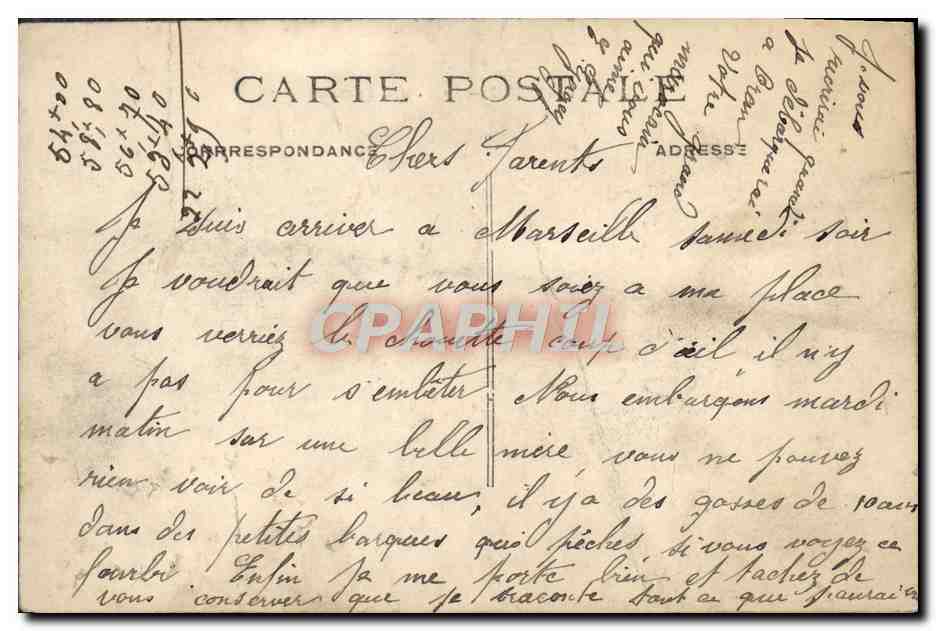 CARTE POSTALE
CORRRESPONDANCE
ADRESSE
Chers Parents
Je suis arriver a Marseille samedi soir
Je voudrait que vous soiez a ma place
vous verriez le chouette coup d'œil il n'y
a pas pour s'embêter Nous embarqons mardi
matin sur une belle mère, vous ne pouvez
rien voir de si beau, il y a des gosses de 10 ans
dans des petites barques qui pêches, si vous voyez ce
fourbi. Enfin je me porte bien et tachez de
vous conserver que je raconte tout ce que j'aurai
Je vous
quand
Je débarquerai
a Oran
Votre
qui vous
aime
54+20
58+80
56+70
CPAPHIL